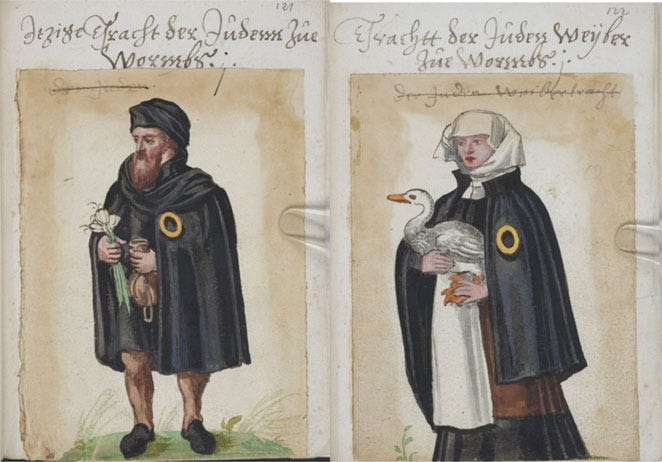 121
Jtzige Tracht der Jüdenn Züe
Wormbs ./.
der Juden.
122
Trachtt der Jüden Weÿber
Züe Wormbs ./.
der Juden Weibertracht